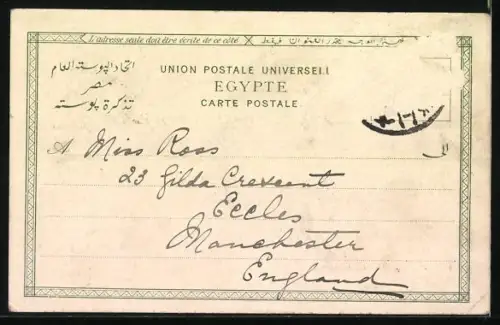 L'adresse seule doit être écrite de ce côté
اتحاد البوسته العام
مصر
تذكرة بوسته
UNION POSTALE UNIVERSELL
EGYPTE
CARTE POSTALE.
A Miss Ross
الى
23 Gilda Crescent
Eccles
Manchester
England